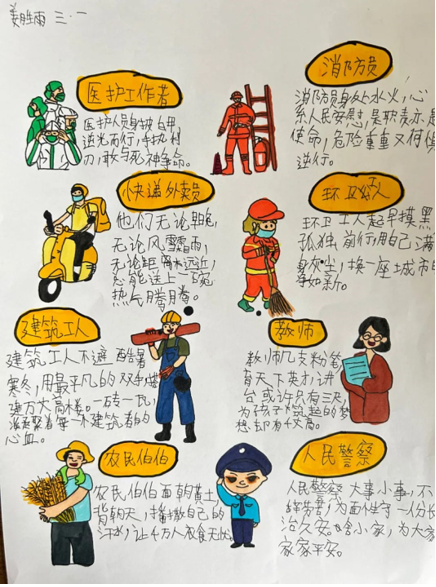 姜胜雨 三·一
医护工作者
医护人员身披白甲
逆光而行,手执利
刃,敢与死神争命。
消防员
消防员身处水火,心
系人民安慰,是职责亦是
使命,危险重重又何惧
逆行。
快递外卖员
他们无论早晚,
无论风霜雨,
无论距离远近,
总能送上一碗
热气腾腾。
环卫工人
环卫工人起早摸黑
孤独前行用自己满
身灰尘,换一座城市的
净如新。
建筑工人
建筑工人不避酷暑
寒冬,用最平凡的双手
建万丈高楼。一砖一瓦,
凝聚着每一个建筑者的
心血。
教师
教师几支粉笔
育天下英才,讲
台或许只有三尺,
为孩子筑起的梦
想却有千丈高。
农民伯伯
农民伯伯面朝黄土
背朝天,播撒自己的
汗水,让千万人衣食无忧。
人民警察
人民警察大事小事,不
辞劳苦,为百姓守一份长
治久安。舍小家,为大家
家家平安。